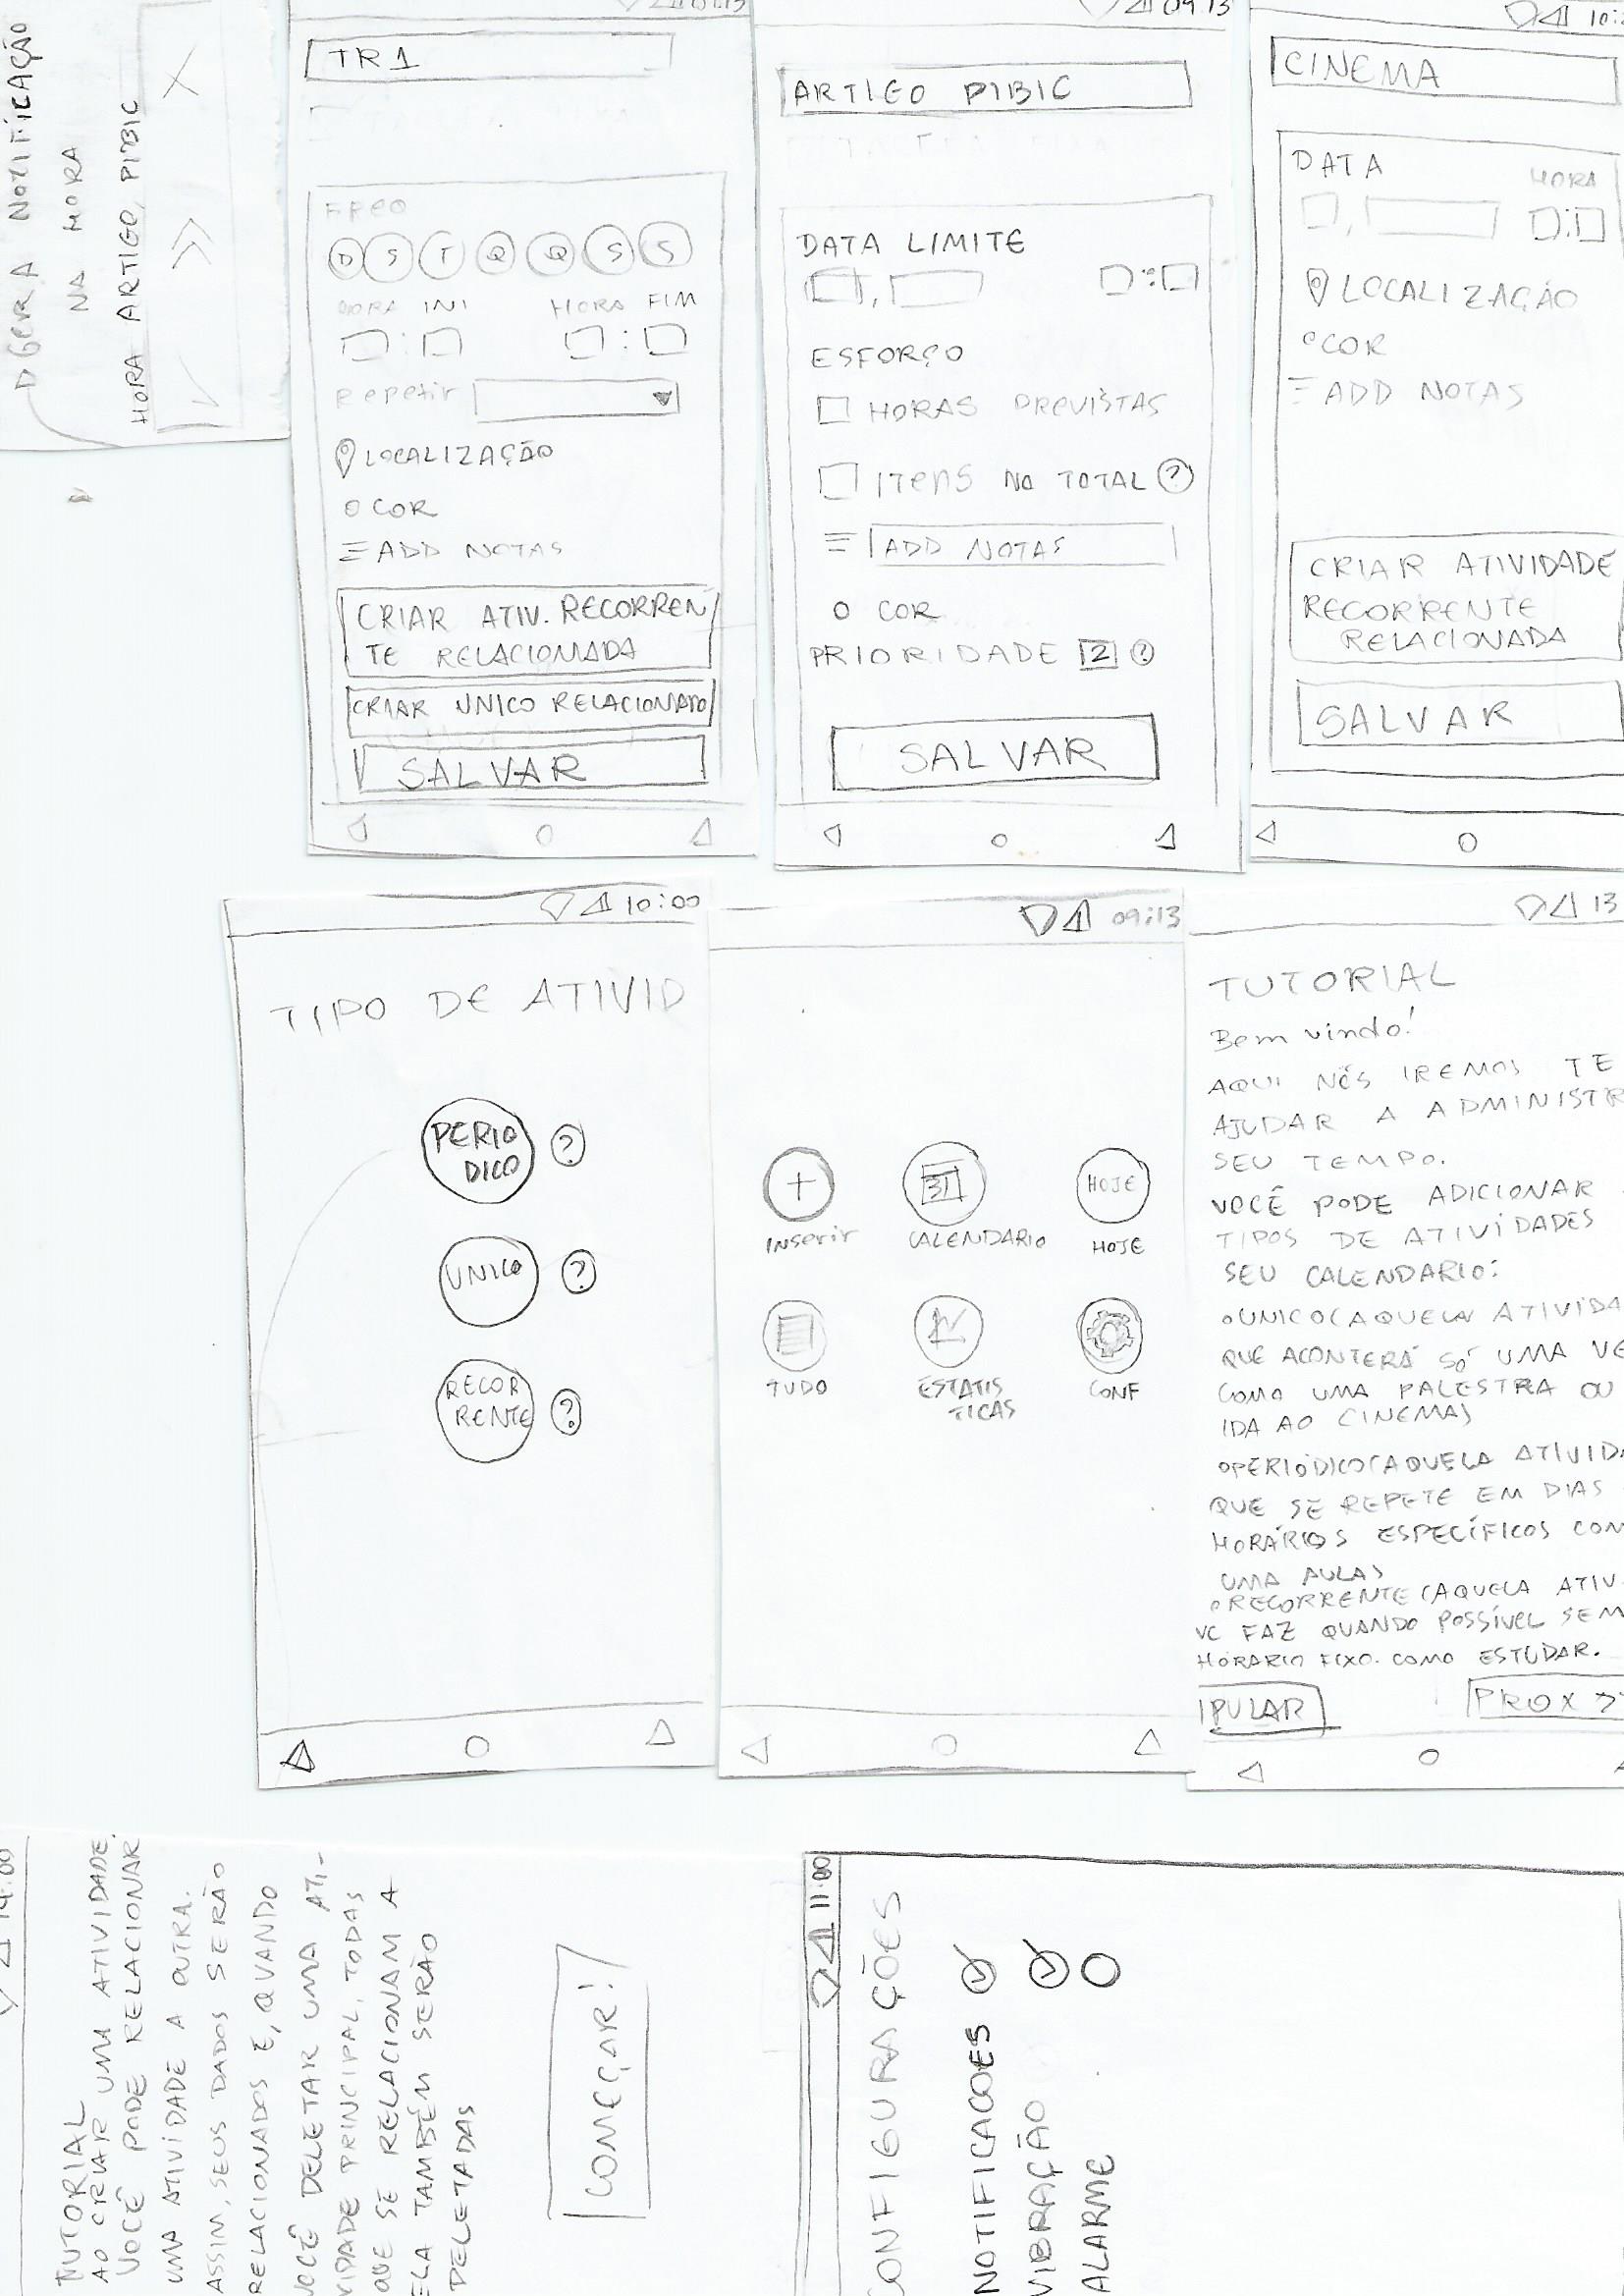 GERA NOTIFICAÇÃO
NA HORA
HORA ARTIGO, PIBIC
TR1
FREQ
D S T Q Q S S
HORA INI HORA FIM
: :
Repetir
LOCALIZAÇÃO
COR
ADD NOTAS
CRIAR ATIV. RECORREN
TE RELACIONADA
CRIAR UNICO RELACIONADO
SALVAR
09:13
ARTIGO PIBIC
DATA LIMITE
, :
ESFORÇO
HORAS PREVISTAS
ITENS NO TOTAL ?
ADD NOTAS
COR
PRIORIDADE 2 ?
SALVAR
10:
CINEMA
DATA
HORA
, :
LOCALIZAÇÃO
COR
ADD NOTAS
CRIAR ATIVIDADE
RECORRENTE
RELACIONADA
SALVAR
10:00
TIPO DE ATIVID
PERIO
DICO ?
UNICO ?
RECOR
RENTE ?
09:13
+ 31 HOJE
Inserir CALENDARIO HOJE
TUDO ESTATIS
TICAS CONF
13
TUTORIAL
Bem vindo!
AQUI NÓS IREMOS TE
AJUDAR A ADMINISTR
SEU TEMPO.
VOCÊ PODE ADICIONAR
TIPOS DE ATIVIDADES
SEU CALENDARIO:
UNICO(AQUELA ATIVIDA
QUE ACONTERÁ SÓ UMA VE
COMO UMA PALESTRA OU
IDA AO CINEMA)
PERIÓDICO(AQUELA ATIVIDA
QUE SE REPETE EM DIAS
HORÁRIOS ESPECÍFICOS COM
UMA AULA)
RECORRENTE (AQUELA ATIV
VC FAZ QUANDO POSSÍVEL SEM
HORARIO FIXO. COMO ESTUDAR.
PULAR
PROX >
14:00
TUTORIAL
AO CRIAR UMA ATIVIDADE.
VOCÊ PODE RELACIONAR
UMA ATIVIDADE A OUTRA.
ASSIM, SEUS DADOS SERÃO
RELACIONADOS E, QUANDO
VOCÊ DELETAR UMA ATI-
VIDADE PRINCIPAL, TODAS
QUE SE RELACIONAM A
ELA TAMBÉM SERÃO
DELETADAS
COMEÇAR!
11:00
CONFIGURAÇÕES
NOTIFICACOES
VIBRAÇÃO
ALARME